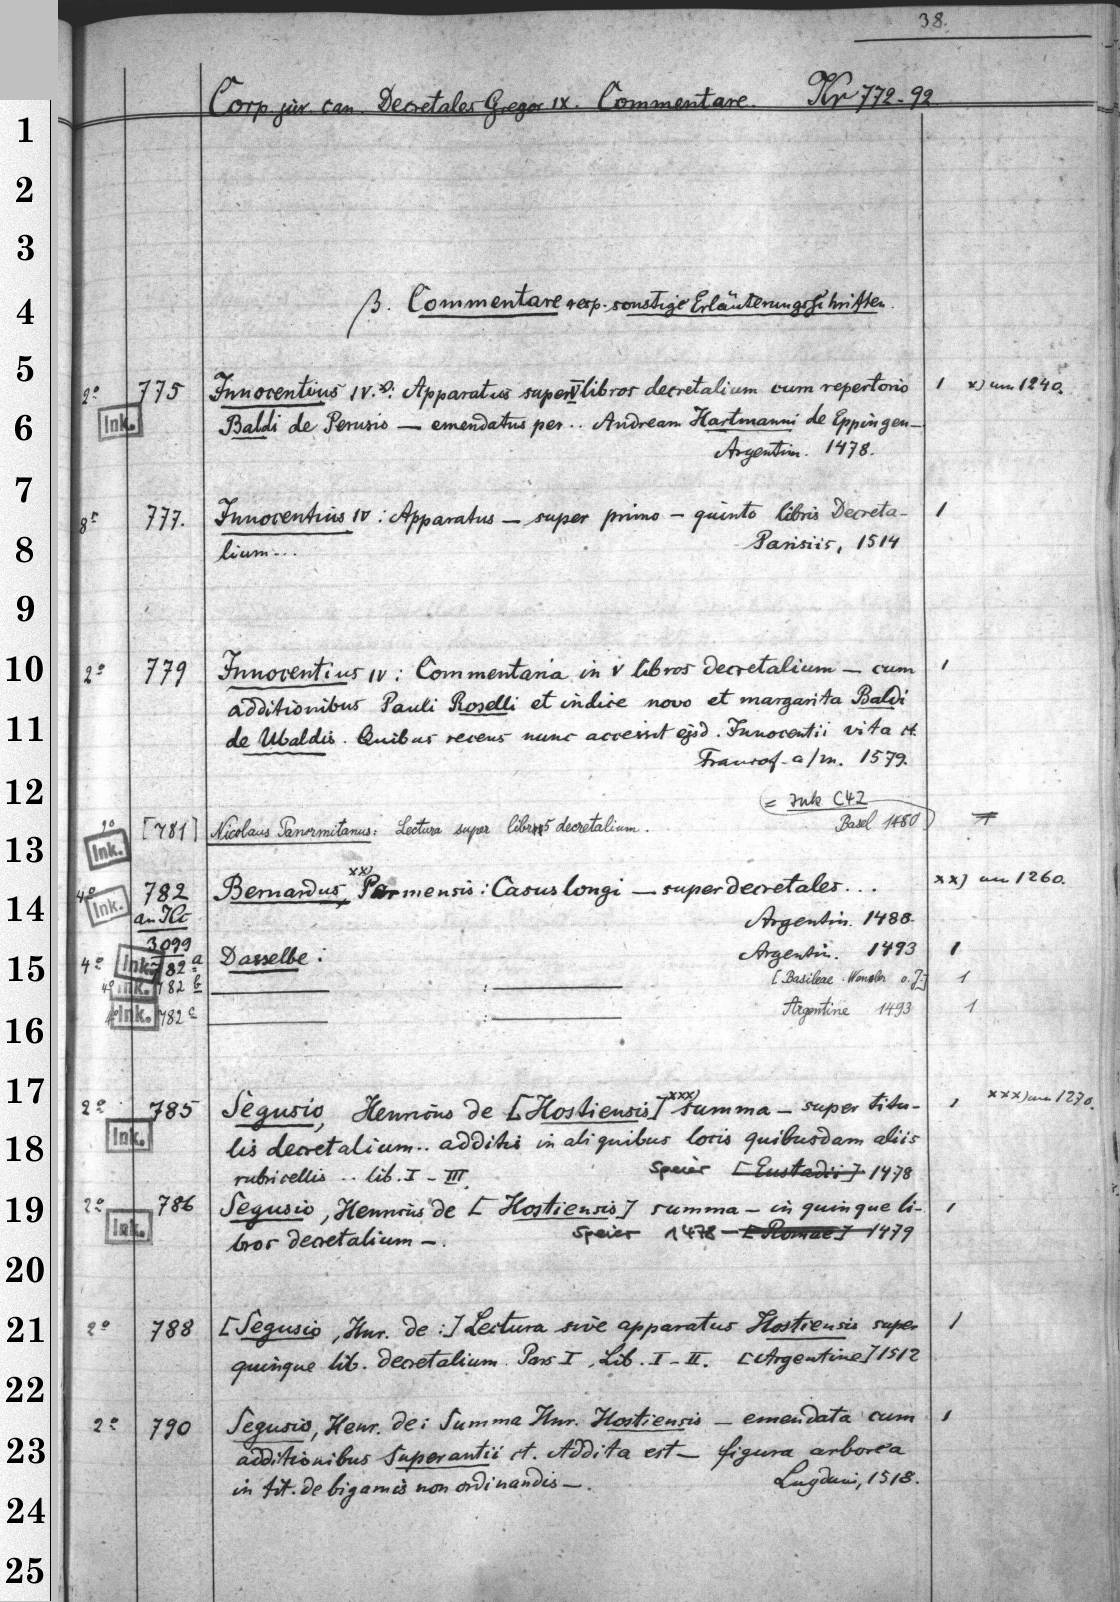 38.
Corp. jur. can. Decretales Gregor IX. Commentare. Nr 772-92
1
2
3
4 β. Commentare resp. sonstige Erläuterungsschriften.
5
2° 775 Innocentius IV. x): Apparatus super V libros decretalium cum repertorio 1 x) um 1240.
6 Ink. Baldi de Perusio — emendatus per .. Andream Hartmanni de Eppingen —
Argentin. 1478.
7
8° 777. Innocentius IV: Apparatus — super primo — quinto libris Decreta- 1
8 lium... Parisiis, 1514
9
10 2° 779 Innocentius IV: Commentaria in V libros decretalium — cum 1
additionibus Pauli Roselli et indice novo et margarita Baldi
11 de Ubaldis. Quibus recens nunc accessit ejsd. Innocentii vita et.
Francof. a/m. 1579.
12 = Ink C42
2° [781] Nicolaus Panormitanus: Lectura super libros 5 decretalium. Basel 1480
13 Ink.
4° 782 Bernardus, xx) Parmensis: Casus longi — super decretales... xx) um 1260.
14 Ink. an Hc Argentin. 1488.
3099
15 4° Ink. 782 a Dasselbe: Argentin. 1493 1
4° Ink. 782 b — : — [Basileae Wenssler o.J.] 1
16 4° Ink. 782 c — : — Argentine 1493 1
17
2° 785 Segusio, Henricus de [Hostiensis] xxx) summa — super titu- 1 xxx) um 1270.
18 Ink. lis decretalium.. additis in aliquibus locis quibusdam aliis
rubricellis .. lib. I - III. Speier [Eustadii] 1478
19 2° 786 Segusio, Henricus de [Hostiensis] summa — in quinque li- 1
Ink. bros decretalium —. Speier 1478 — [Romae] 1479
20
21 2° 788 [Segusio, Hnr. de:] Lectura sive apparatus Hostiensis super 1
quinque lib. decretalium. Pars I, Lib. I - II. [Argentine] 1512
22
2° 790 Segusio, Henr. de: Summa Hnr. Hostiensis — emendata cum 1
23 additionibus Superantii et. Addita est — figura arborea
in tit. de bigamis non ordinandis —. Lugduni, 1518.
24
25